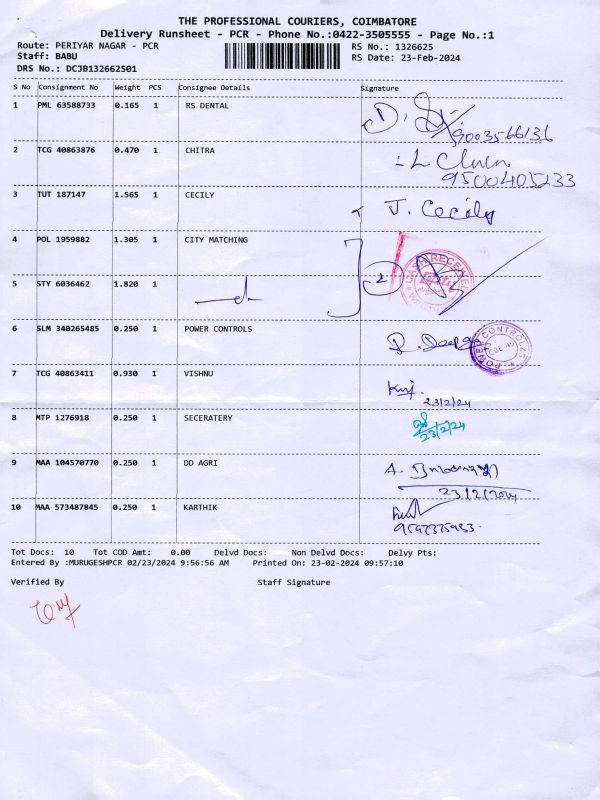 THE PROFESSIONAL COURIERS, COIMBATORE
Delivery Runsheet - PCR - Phone No.:0422-3505555 - Page No.:1
Route: PERIYAR NAGAR - PCR RS No.: 1326625
Staff: BABU RS Date: 23-Feb-2024
DRS No.: DCJB132662501
S No Consignment No Weight PCS Consignee Details Signature
1 PML 63588733 0.165 1 RS DENTAL
9003566136
2 TCG 40863876 0.470 1 CHITRA
9500405233
3 TUT 187147 1.565 1 CECILY J. Cecily
4 POL 1959882 1.305 1 CITY MATCHING
CASH RECEIVED
5 STY 6036462 1.820 1 2
6 SLM 340265485 0.250 1 POWER CONTROLS R. Deepa
POWER CONTROLS CBE-45
7 TCG 40863411 0.930 1 VISHNU
23/2/24
8 MTP 1276918 0.250 1 SECERATERY
23/2/24
9 MAA 104570770 0.250 1 DD AGRI
23/2/2024
10 MAA 573487845 0.250 1 KARTHIK
9597375933
Tot Docs: 10 Tot COD Amt: 0.00 Delvd Docs: Non Delvd Docs: Delvy Pts:
Entered By :MURUGESHPCR 02/23/2024 9:56:56 AM Printed On: 23-02-2024 09:57:10
Verified By Staff Signature